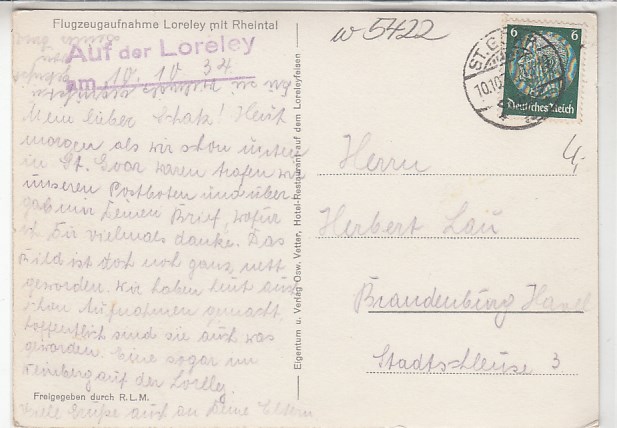 Flugzeugaufnahme Loreley mit Rheintal
Auf der Loreley
am 10. 10 34
Mein lieber Schatz! Heut
morgen als wir schon unten
in St. Goar waren trafen wir
unseren Postboten und über
gab mir Deinen Brief, wofür
ich Dir vielmals danke. Das
Bild ist doch noch ganz nett
geworden. Wir haben heut auch
schon Aufnahmen gemacht
hoffentlich sind sie auch was
geworden. Eine sogar im
Weinberg auf der Loreley.
Viele Grüße auch an Deine Eltern
Freigegeben durch R.L.M.
Eigentum u. Verlag Osw. Vetter, Hotel-Restaurant auf dem Loreleyfelsen
w 5422
ST. GOAR
10.10.
6 6
Deutsches Reich
4,-
Herrn
Herbert Lau
Brandenburg Havel
Stadtschleuse 3